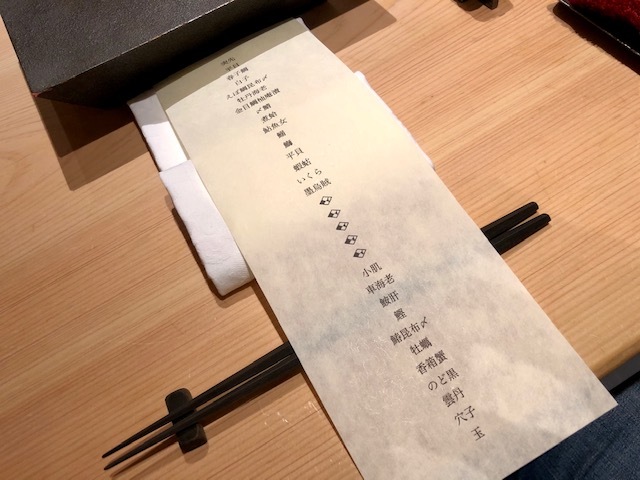 春子鯛
白子
えぼ鯛昆布〆
牡丹海老
金目鯛柚庵漬
〆鯖
煮蛤
鮎魚女
鰤
平貝
蝦蛄
いくら
墨烏賊
小肌
車海老
鮟肝
鰹
鮪昆布〆
牡蠣
香箱蟹
のど黒
雲丹
穴子
玉